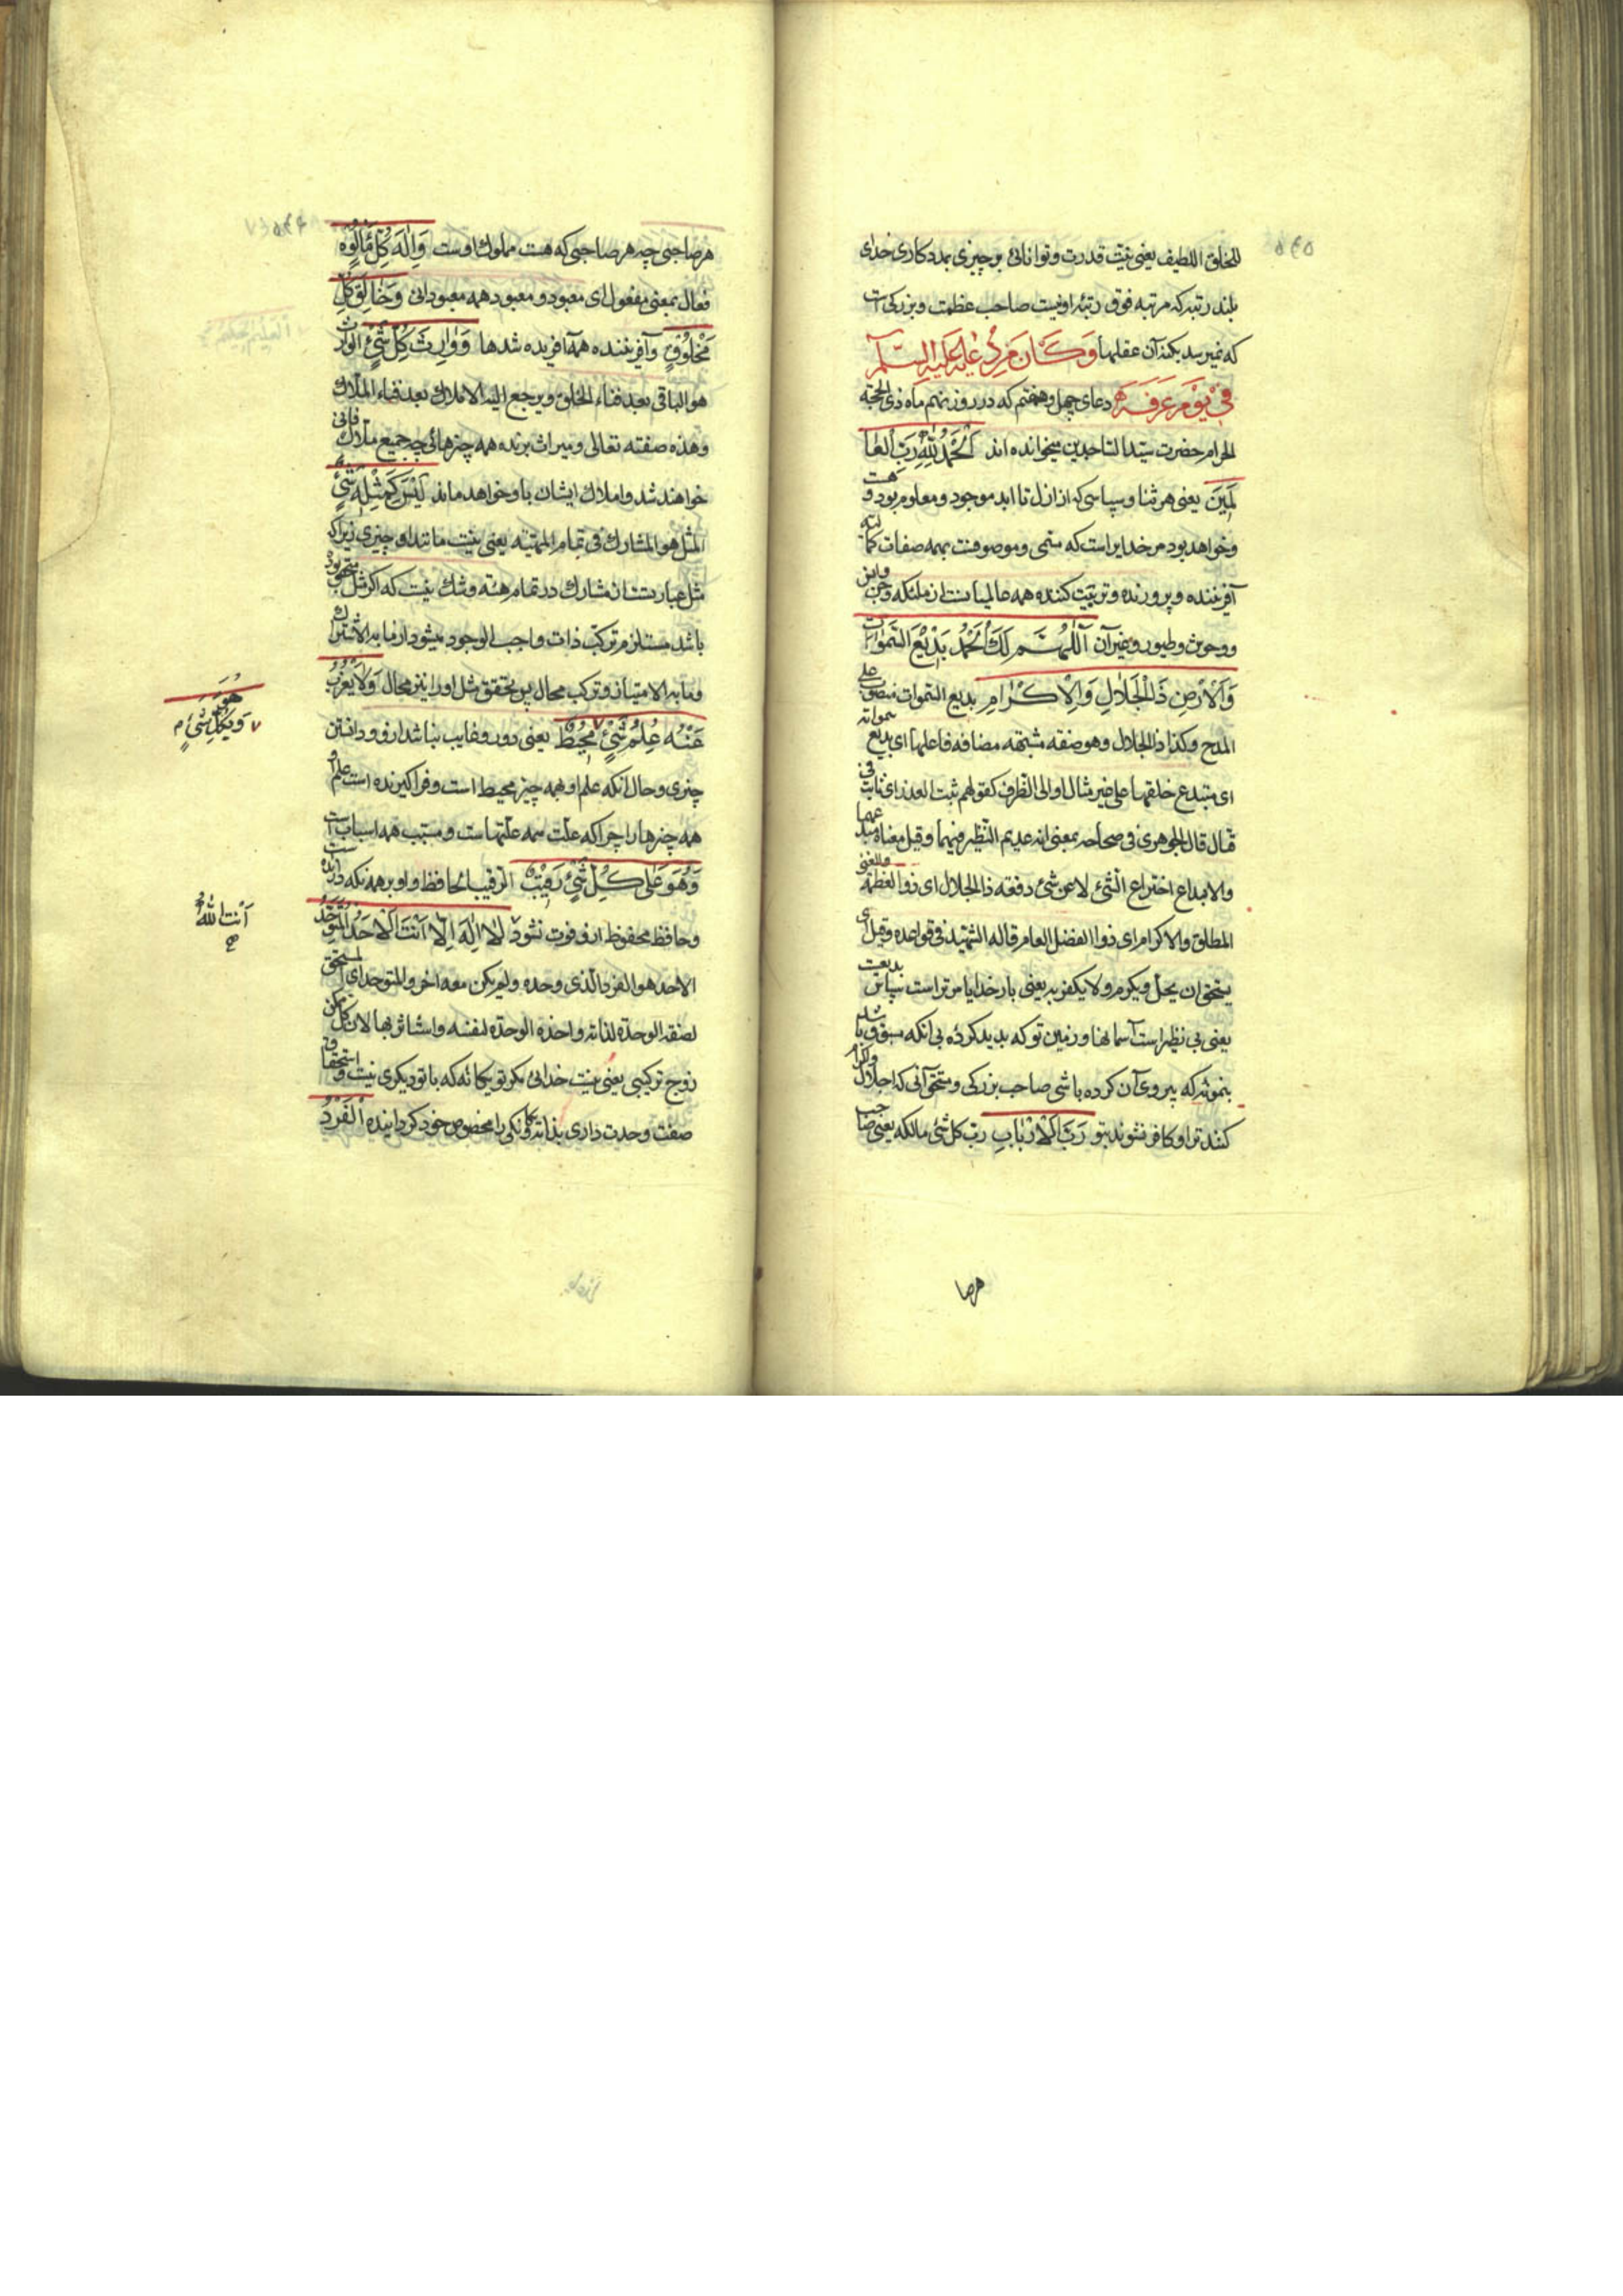 للخلق اللطیف یعنی نیست قدرت و توانائی بر چیزی بمددکاری خدای
بلند رتبه که مرتبه فوق رتبه او نیست صاحب عظمت و بزرکی است
که نمیرسد بکنه آن عقلها وَكَانَ مِنْ دُعَائِهِ عَلَيْهِ السَّلَام
فِي يَوْمِ عَرَفَةَ دعای چهل و هفتم که در روز نهم ماه ذی الحجّه
الحرام حضرت سیّد الساجدین میخوانده اند اَلْحَمْدُ لِلّٰهِ رَبِّ الْعَا
لَمِينَ یعنی هر ثنا و سپاسی که از ازل تا ابد موجود و معلوم بود و هست
و خواهد بود مر خدایراست که مسمی و موصوفست بهمه صفات کمالیه
آفریننده و پرورنده و تربیت کننده همه عالمیانست از ملئکه و جن و انس
و وحوش و طیور و غیر آن اَللّٰهُمَّ لَكَ الْحَمْدُ بَدِيْعَ السَّمٰوَاتِ
وَالْاَرْضِ ذَا الْجَلَالِ وَالْاِكْرَامِ بدیع السموات منصوب علی
المدح و کذا ذا الجلال وهو صفة مشبّهة مضافة فاعلها ای بدیع سمواته
ای مبتدع خلقهما علی غیر مثال او الی الظرف کقولهم ثبت الغدر ای ثابت فی
قال الجوهری فی صحاحه بمعنی انه عدیم النظیر فیهما و قیل معناه مبدعهما
والابداع اختراع الشئ لا عن شئ دفعة ذا الجلال ای ذو العظمة والغنی
المطلق والاکرام ای ذو الفضل العام قاله الشهید فی قواعده و قیل ای
یستحق ان یجل و یکرم ولا یکفر به یعنی بار خدایا مر تراست سپاس بدیعت
یعنی بی نظیر است آسمانها و زمین تو که پدید کردۀ بی آنکه مسبوق باشد
بنمونه که پیروی آن کرده باشی صاحب بزرکی و مستحق آنی که اجلال و اکرام
کنند ترا و کافر نشوند بتو رَبَّ الْاَرْبَابِ ربّ کل شئ مالکه یعنی صاحب
هرصا
هر صاحبی چه هر صاحبی که هست مملوک اوست وَاِلٰهَ كُلِّ مَأْلُوْهٍ
فعال بمعنی مفعول ای معبود و معبود همه معبودانی وَخَالِقَ كُلِّ
مَخْلُوْقٍ و آفریننده همه آفریده شدها وَوَارِثَ كُلِّ شَيْءٍ الوارث
هو الباقی بعد فناء الخلق و یرجع الیه الاملاک بعد فناء الملاک
وهذه صفته تعالی و میراث برنده همه چیزهائی چه جمیع ملاک فانی
خواهند شد و املاک ایشان باو خواهد ماند لَيْسَ كَمِثْلِهِ شَيْءٌ
المثل هو المشارک فی تمام المهیّه یعنی نیست مانند او چیزی زیرا که
مثل عبارتست از مشارک در تمام مهیّه و شک نیست که اکر مثل متحقق بود
باشد مستلزم ترکّب ذات واجب الوجود میشود از ما به الاشتراک
و ما به الامتیاز و ترکب محال پس تحقق مثل او را نیز محال وَلَا يَعْزُبُ
عَنْهُ عِلْمُ شَيْءٍ مُحِيْطٌ یعنی دور و غایب نباشد از و دانستن
چیزی و حال آنکه علم او بهمه چیز محیط است و فراکیرنده است علم او
همه چیزها را چرا که علّت همه علّتهاست و مسبّب همه اسباب است
وَهُوَ عَلٰى كُلِّ شَيْءٍ رَقِيْبٌ الرقیب الحافظ و او بر همه نکه دارنده
و حافظ محفوظ از و فوت نشود لَا اِلٰهَ اِلَّا اَنْتَ الْاَحَدُ الْمُتَوَحِّدُ
الاحد هو الفرد الذی وحده ولم یکن معه اخر والمتوحد ای المستحق
لصفة الوحدة لذاته واخذه الوحدة لنفسه واستاثر بها لان کل ممکن
زوج ترکیبی یعنی نیست خدائی مکر تو یکانه که با تو دیکری نیست و استحقاق
صفت وحدت داری بذاته و یکانکی را مخصوص خود کردانیده اَلْفَرْدُ
هُوَ
وَبِكُلِّ شَيْءٍ م
اَنْتَ اللّٰهُ
صح